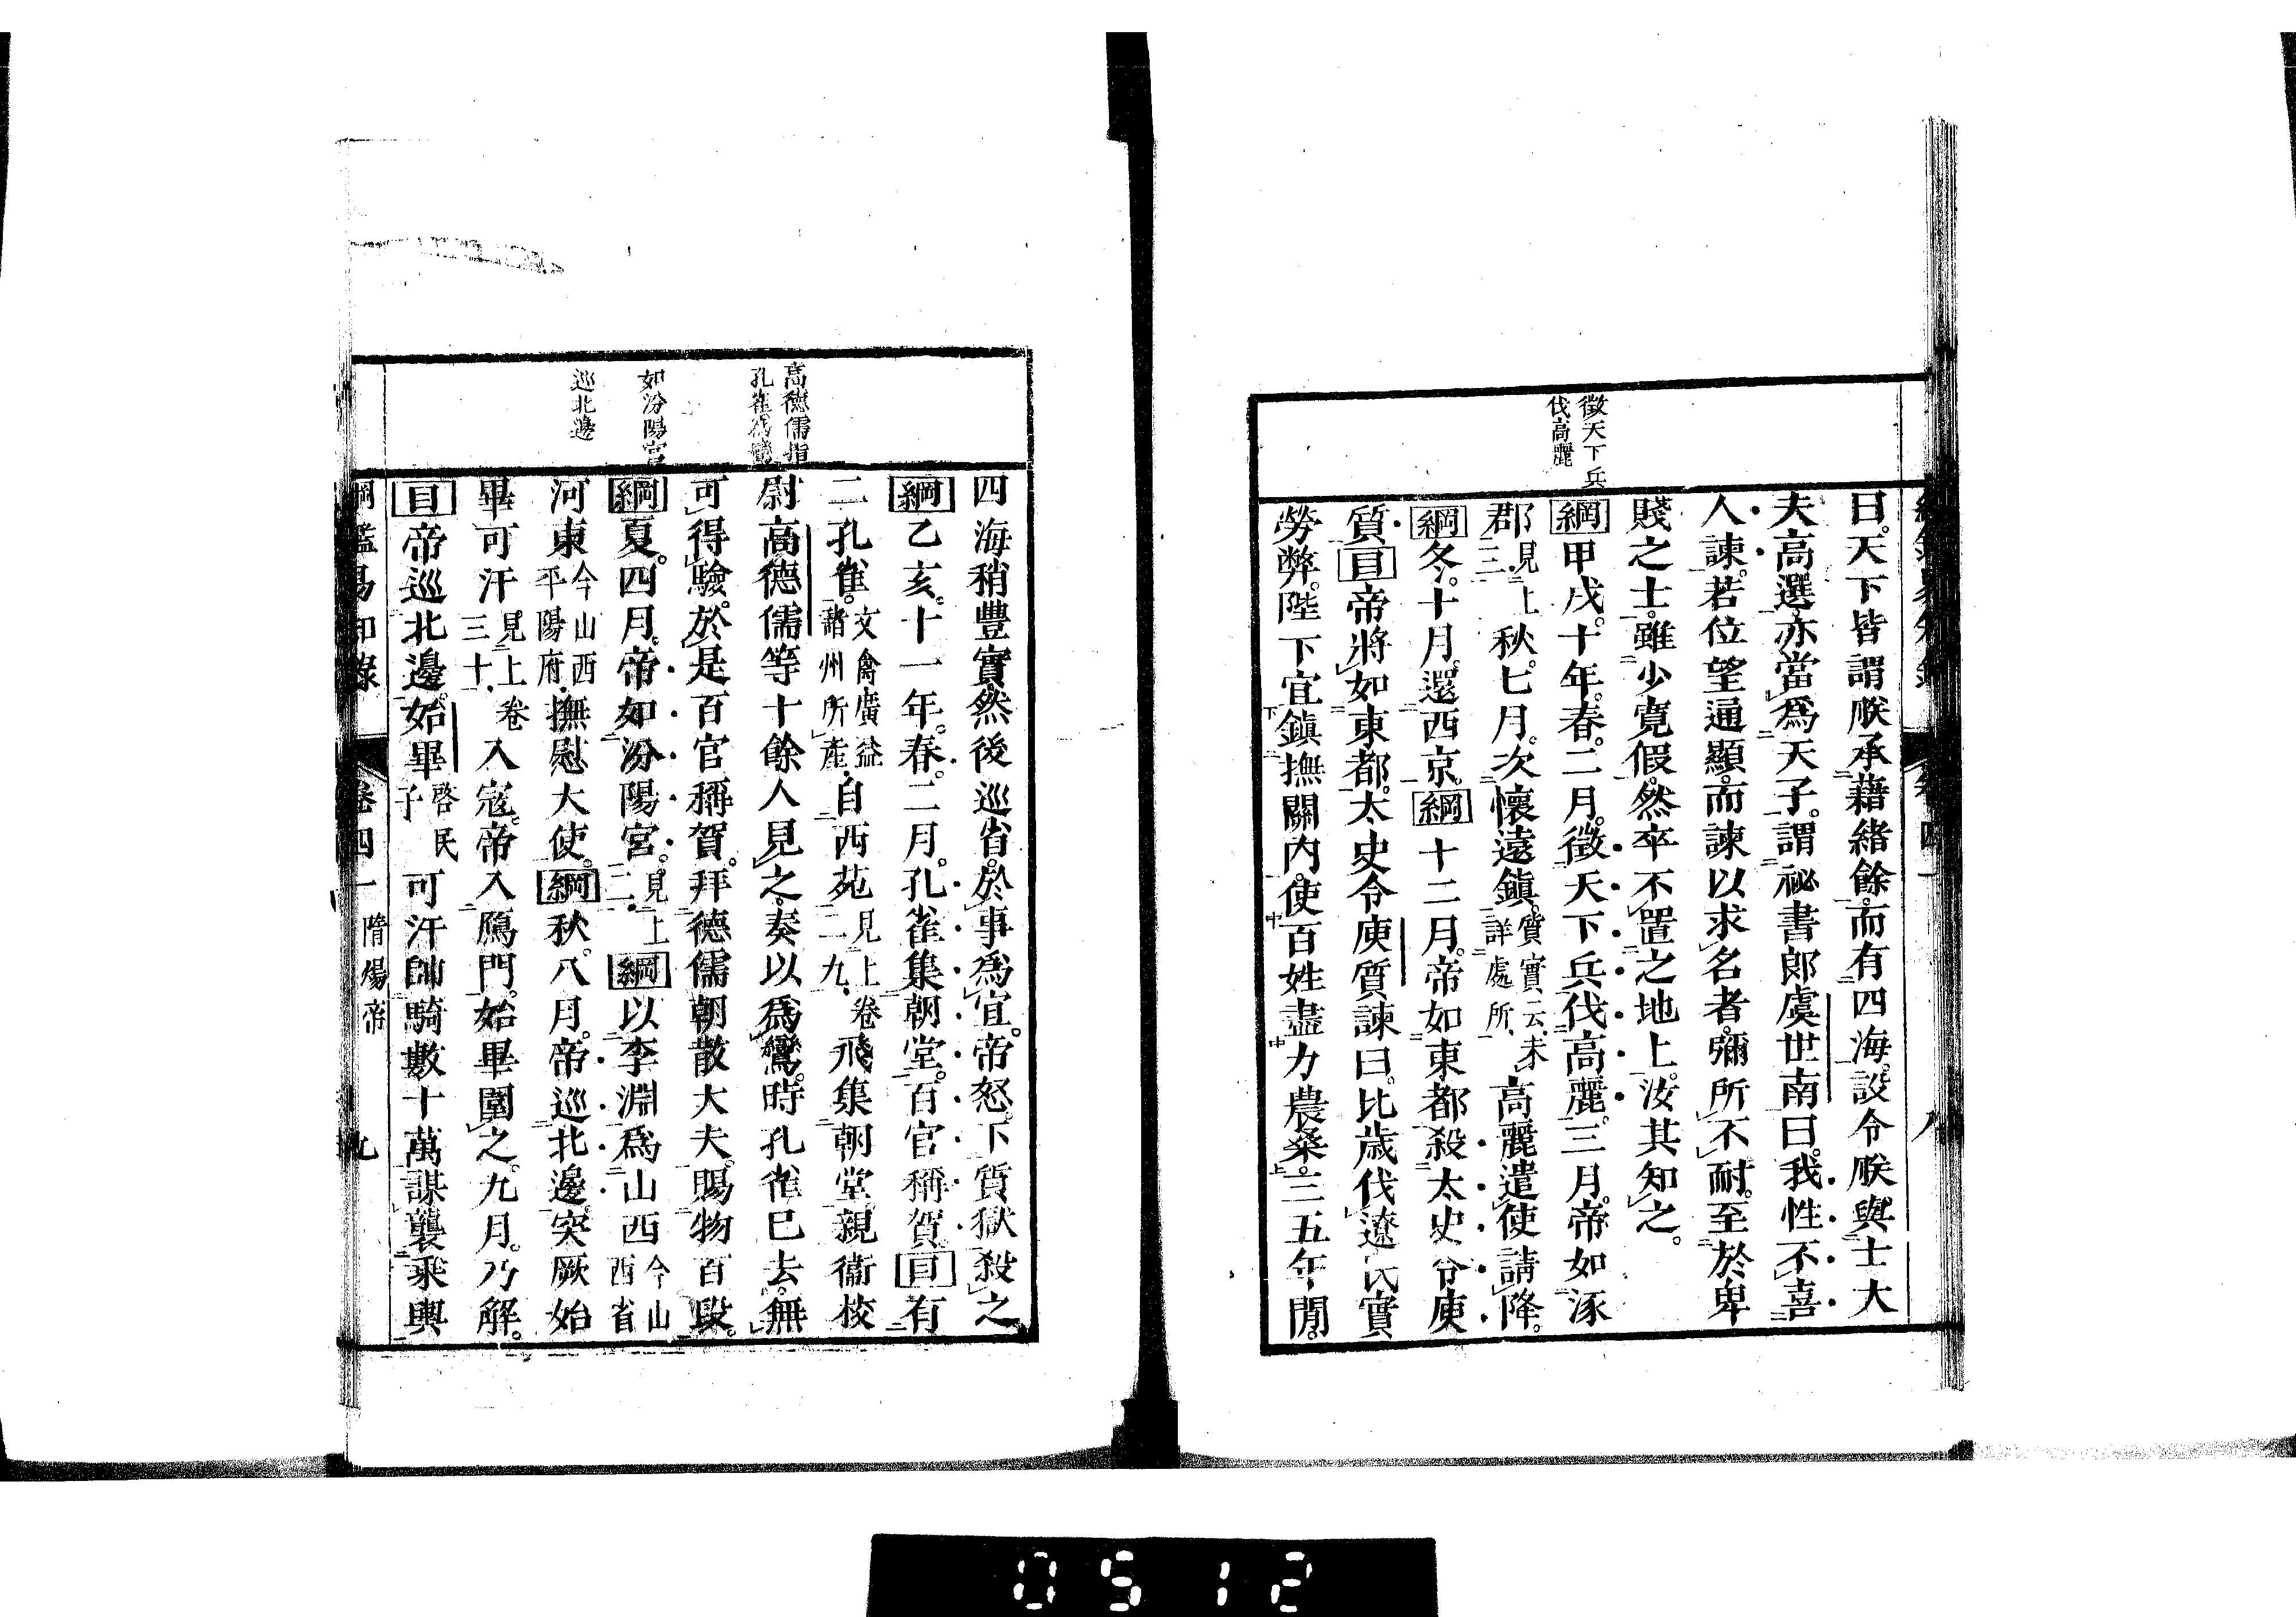 徵天下兵
伐高麗
曰。天下皆謂朕承藉緒餘。而有四海。設令朕與士大
夫高選。亦當爲天子。謂祕書郎虞世南曰。我性不喜
人諫。若位望通顯。而諫以求名者。彌所不耐。至於卑
賤之士。雖少寬假。然卒不置之地上。汝其知之。
綱甲戌。十年。春。二月。徵天下兵伐高麗。三月。帝如涿
郡見上三。秋。七月。次懷遠鎮。質實云、未詳處所、高麗遣使請降。
綱冬。十月。還西京。綱十二月。帝如東都。殺太史令庾
質。目帝將如東都。太史令庾質諫曰。比歲伐遼。民實
勞弊。陛下宜鎮撫關內。使百姓盡力農桑。三五年閒。
高德儒指
孔雀爲鸞
如汾陽宮
巡北邊
四海稍豐實。然後巡省。於事爲宜。帝怒。下質獄殺之
綱乙亥。十一年。春。二月。孔雀集朝堂。百官稱賀。目有
二孔雀。文禽廣益諸州所產、自西苑見上卷二九、飛集朝堂。親衞校
尉高德儒等十餘人見之。奏以爲鸞。時孔雀已去。無
可得驗。於是百官稱賀。拜德儒朝散大夫。賜物百段。
綱夏。四月。帝如汾陽宮。見上二、綱以李淵爲山西今山西省
河東今山西平陽府、撫慰大使。綱秋。八月。帝巡北邊。突厥始
畢可汗見上卷三十、入寇。帝入鴈門。始畢圍之。九月。乃解。
目帝巡北邊。始畢啓民子可汗帥騎數十萬謀襲乘輿
綱鑑易知錄 卷四一 隋煬帝 九